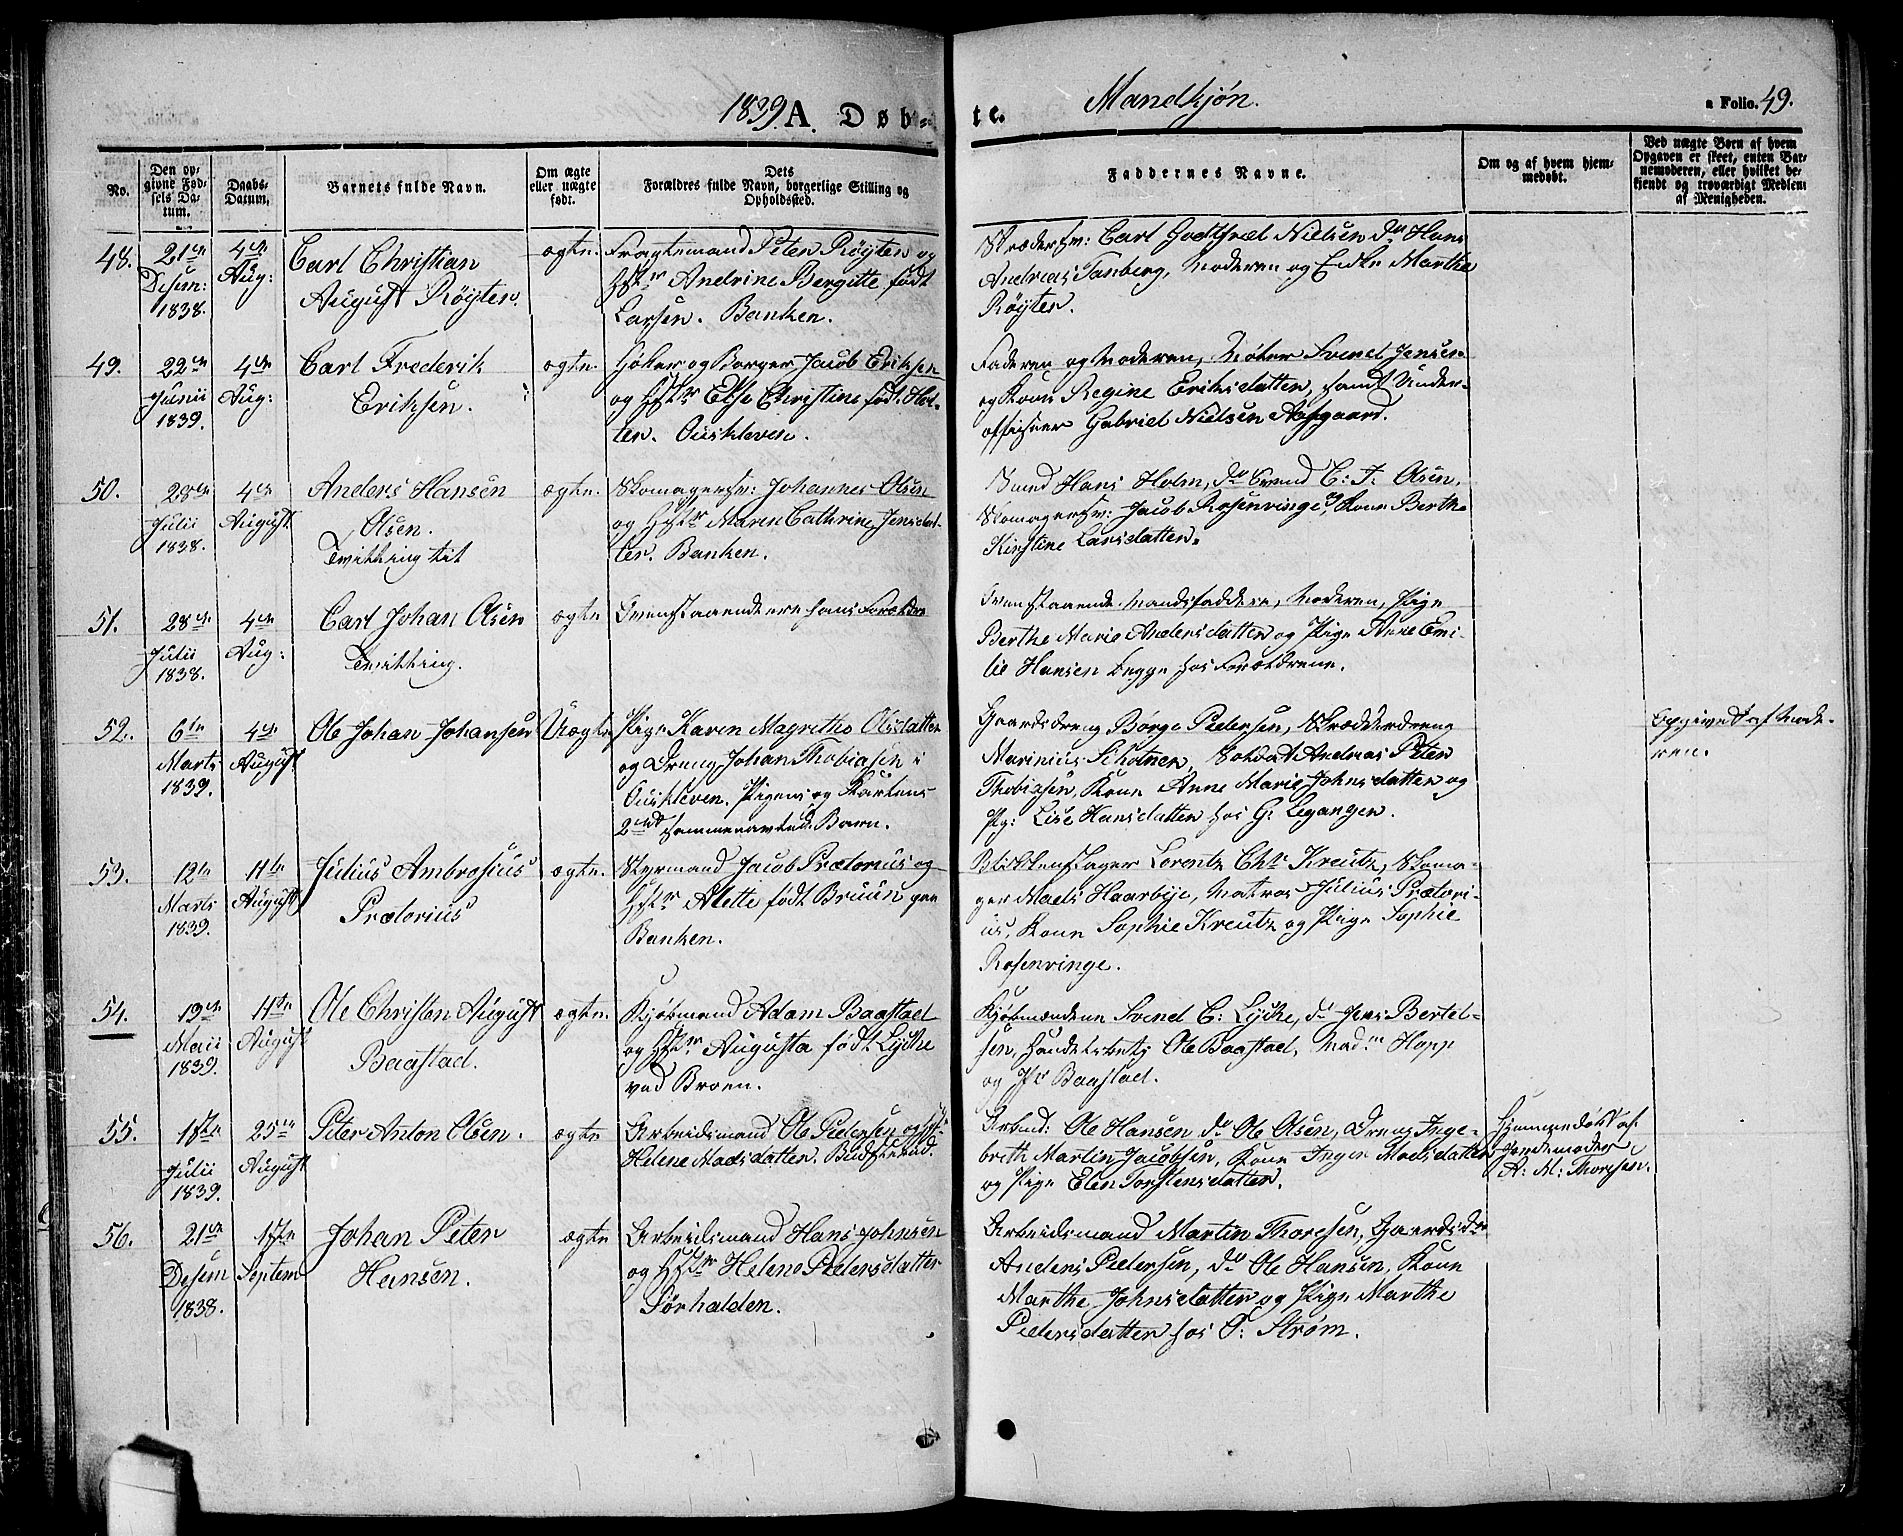 1839. A. Døb-
te. Mandkjøn. a Folio. 49.
No.
Den op-
givne Fød-
sels Da-
tum.
Daabs-
Datum.
Barnets fulde Navn.
Om ægte
eller uægte
født.
Dets
Forældres fulde Navn, borgerlige Stilling og
Opholdssted.
Faddernes Navne.
Om og af hvem hjem-
medøbt.
Ved uægte Børn af hvem
Opgaven er skeet, enten Bar-
nemoderen, eller hvilket be-
kjendt og troværdigt Medlem
af Menigheden.
48.
21de
Desem:
1838.
4de
Aug:
Carl Christian
August Röyter.
ægte.
Fragtemand Peter Röyter og
Hstr Andrine Bergitte født
Larsen. Banken.
Skrædersv: Carl Godtfred Nielsen do Hans
Andreas Tanberg, Moderen og Enke Marthe
Röyter.
49.
22de
Junii
1839.
4de
Aug:
Carl Frederik
Eriksen.
ægte.
Høker og Borger Jacob Eriksen
og Hstr Else Christine født Hol-
ter. Ouskleven.
Faderen og Moderen, Svend Jensen
og Kone Regine Eriksdatter, samt Under-
officeer Gabriel Nielsen Aasgaard.
50.
28de
Julii
1838.
4de
August
Anders Hansen
Olsen.
Tvilling til
ægte.
Skomagersv: Johannes Olsen
og Hstr Maren Cathrine Jensdat-
ter. Banken.
Smed Hans Holm, do Svend C: F: Olsen,
Skomagersv: Jacob Rosenvinge og Kone Berthe
Kirstine Larsdatter.
51.
28de
Julii
1838.
4de
Aug:
Carl Johan Olsen
Tvilling.
ægte
Ovenstaaende ere hans Forældre
Ovenstaaende Mandsfaddere, Moderen, Pige
Berthe Marie Andersdatter og Pige Anne Emi-
lie Hansen begge hos Forældrene.
52.
6te
Marts
1839.
4de
August
Ole Johan Johansen
Uægte
Pige Karen Magrethe Olsdatter
og Dreng Johan Thobiasen i
Ouskleven. Pigens og Karlens
2det sammenavlede Barn.
Gaardsdreng Børge Pedersen, Skrædderdreng
Marinius Skolmen, Soldat Andreas Peter
Thobiasen, Kone Anne Marie Johnsdatter og
Pig: Lise Hansdatter hos G: Legangen.
Opgivet af Mode-
ren.
53.
12te
Marts
1839.
11te
August
Julius Ambrosius
Prætorius
ægte.
Styrmand Jacob Prætorius og
Hstr Alette født Bruun paa
Banken.
Blikkenslager Lorentz Chr Kreutz, Skoma-
ger Mads Haarbye, Matros Julius Prætori-
us, Kone Sophie Kreutz og Pige Sophie
Rosenvinge.
54.
19de
Maii
1839.
11te
August
Ole Christen August
Baastad.
ægte.
Kjøbmand Adam Baastad
og Hstr Augusta født Lycke
ved Broen.
Kjøbmændene Svend C: Lycke, do Jens Bertel-
sen, Handelsbetj Ole Baastad, Madm Hopp
og Baastad.
55.
18de
Julii
1839.
25de
August
Peter Anton Olsen.
ægte
Arbeidsmand Ole Pedersen og Hst
Helene Madsdatter.
Arbmd: Ole Hansen do Ole Olsen, Dreng Inge-
breth Martin Jacobsen, Kone Inger Madsdatter
og Pige Elen Torstensdatter.
Hjemmedøbt af
Jordemoder
A: M: Thorsen.
56.
21de
Desem
1838.
1ste
Septem
Johan Peter
Hansen.
ægte
Arbeidsmand Hans Johnsen
og Hstr Helene Pedersdatter
Sørhalden.
Arbeidsmand Martin Thoresen, Gaardsdr
Anders Pedersen, do Ole Hansen, Kone
Marthe Johnsdatter og Pige Marthe
Pedersdatter hos O: Strøm.